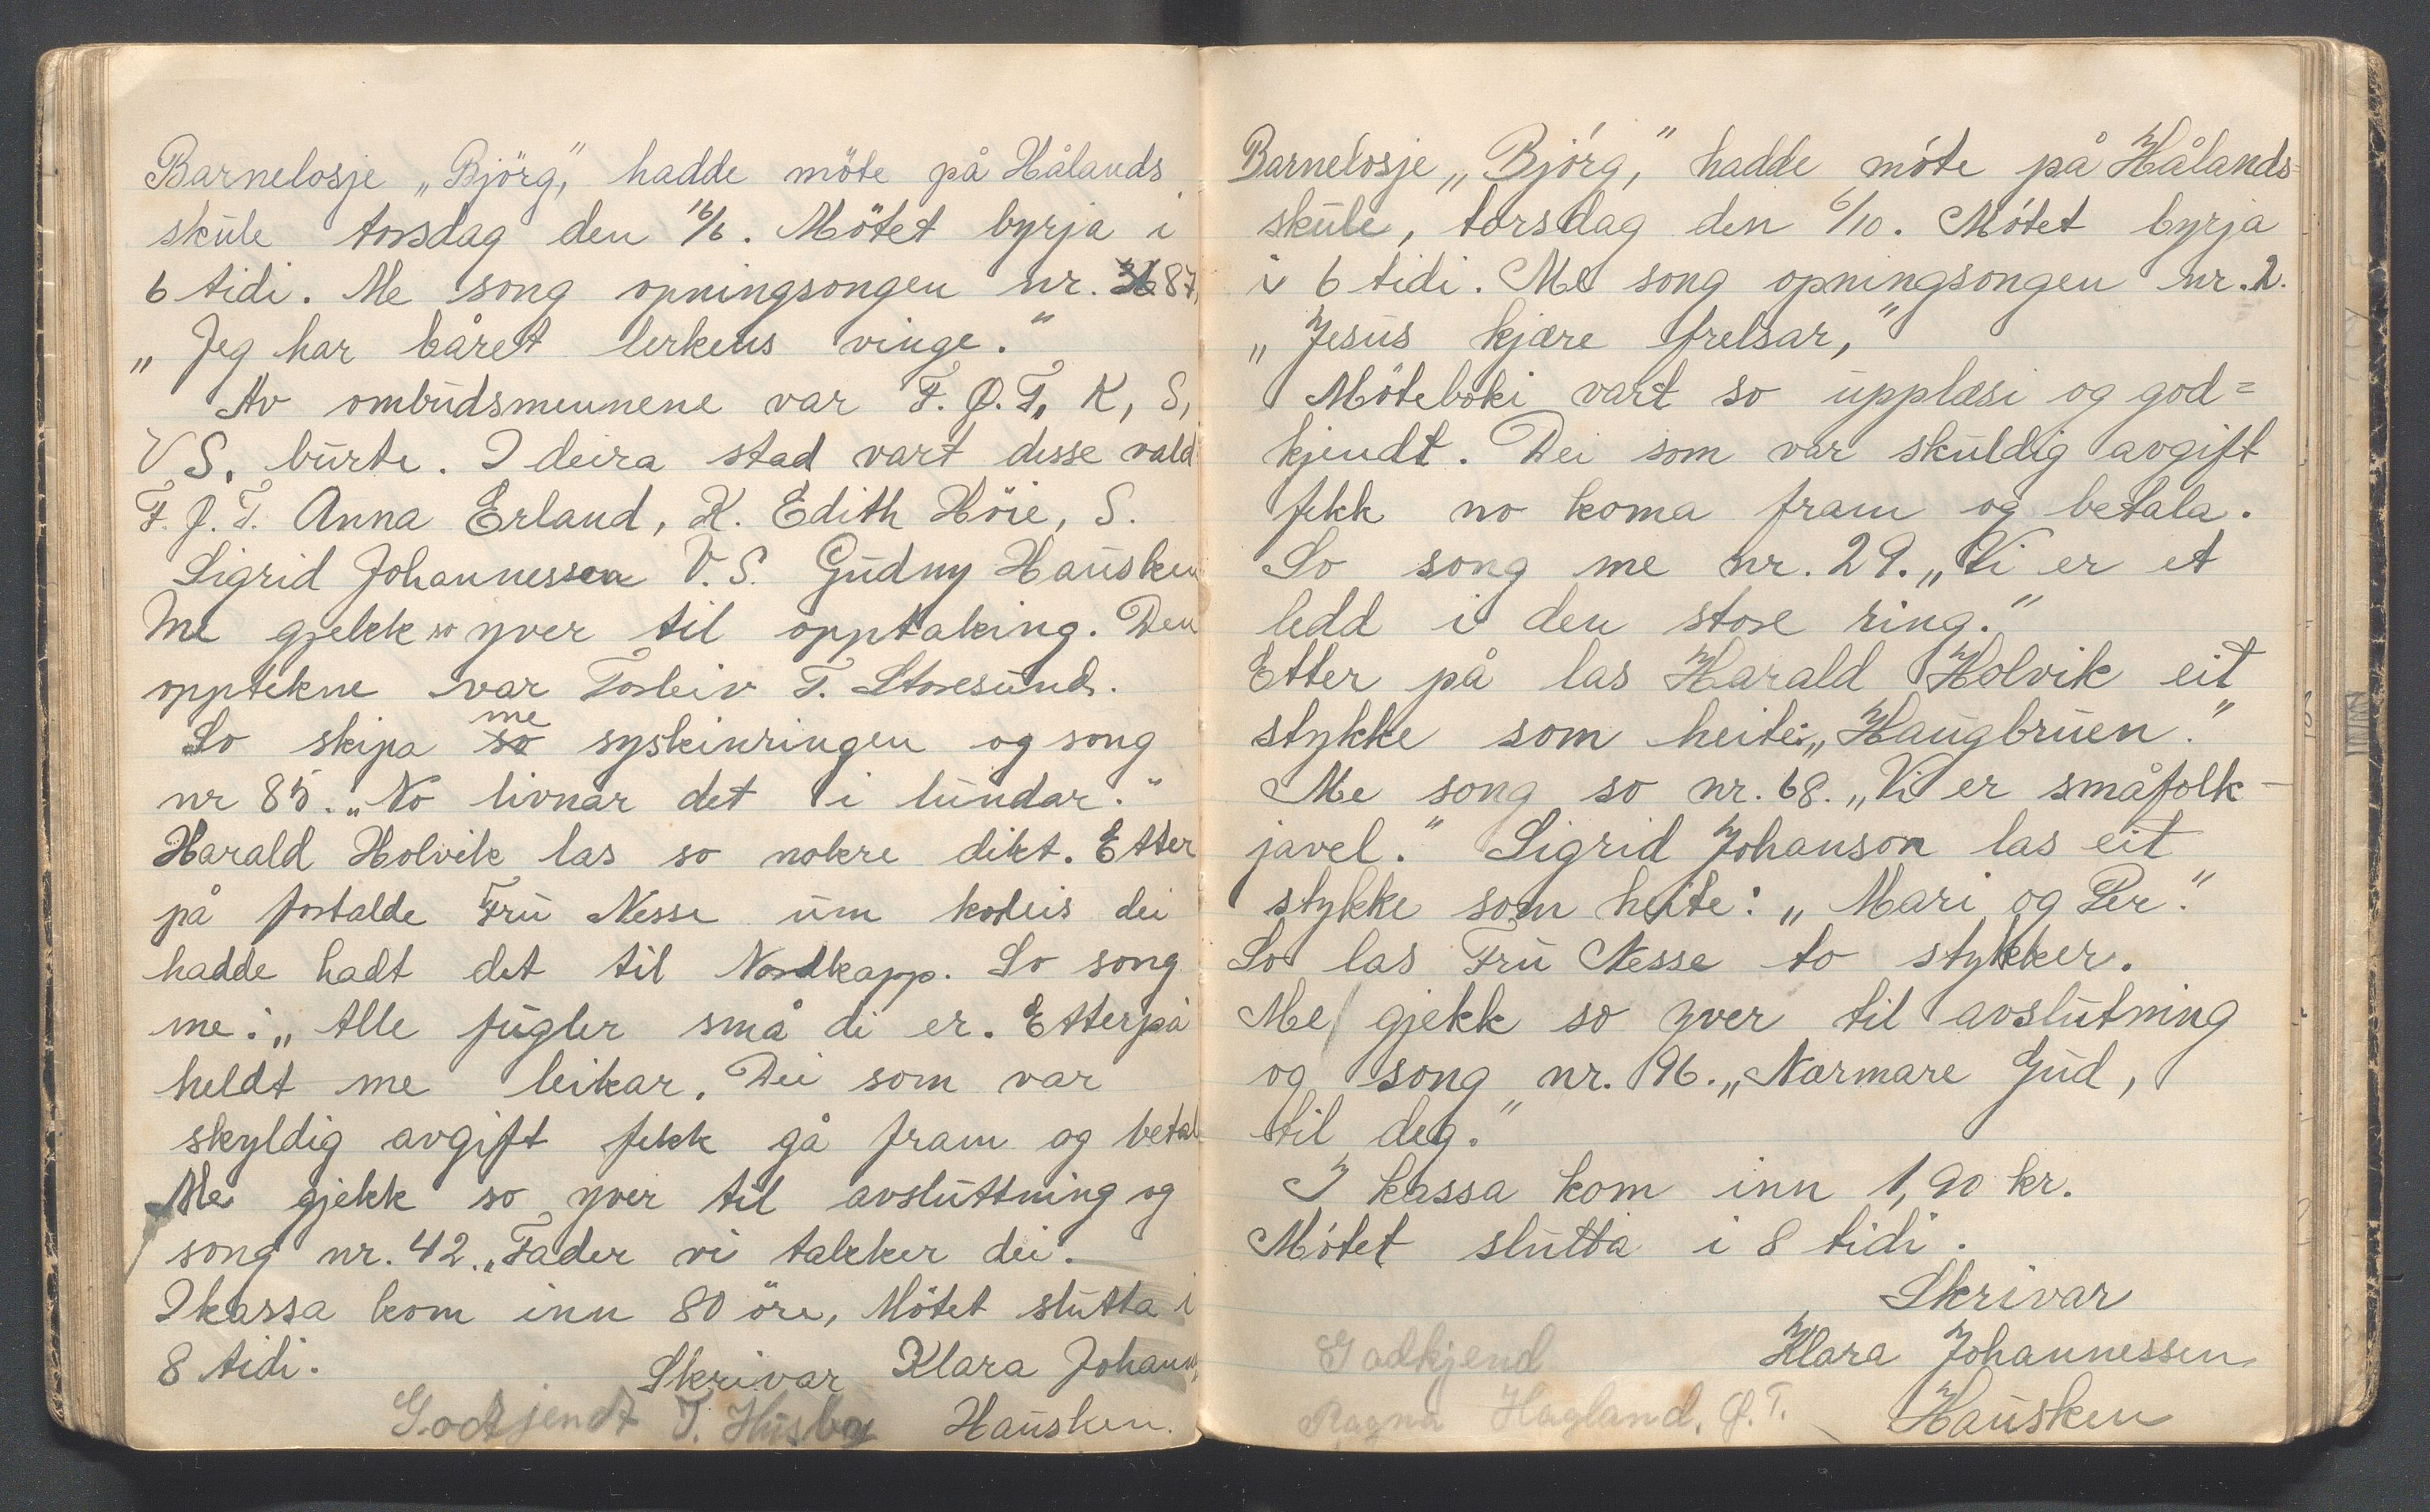 Barnelosje „Björg," hadde möte på Hålands
skule torsdag den 16/6. Mötet byrja i
6 tidi. Me song opningsongen nr. 87,
„Jeg har båret lerkens vinge."
Av ombudsmennene var F. Ø. T, K, S,
V S. burte. I deira stad vart desse vald
F. J. T. Anna Erland, K. Edith Höie, S.
Sigrid Johannessen V. S. Gudny Hausken
Me gjekk so yver til opptaking. Den
opptekne var Torleiv T. Storesund.
So skipa me syskinringen og song
nr 85. „No livnar det i lundar."
Harald Holvik las so nokre dikt. Etter
på fortalde Fru Nesse um korleis dei
hadde hadt det til Nordkapp. So song
me: „Alle fugler små di er. Etterpå
heldt me leikar. Dei som var
skyldig avgift fekk gå fram og betal
Me gjekk so yver til avsluttning og
song nr. 42. „Fader vi takker dei.
I kassa kom inn 80 öre, Mötet slutta i
8 tidi.
Skrivar Klara Johann
Godkjendt T. Husby Hausken.
Barnelosje „Björg," hadde möte på Hålands-
skule, torsdag den 6/10. Mötet byrja
i 6 tidi. Me song opningsongen nr. 2.
„Jesus kjære frelsar,"
Möteboki vart so upplæsi og god=
kjendt. Dei som var skuldig avgift
fekk no koma fram og betala.
So song me nr. 29. „Vi er et
ledd i den store ring."
Etter på las Harald Holvik eit
stykke som heite: „Haugbruen."
Me song so nr. 68. „Vi er småfolk-
javel." Sigrid Johanson las eit
stykke som heite: „Mari og Per."
So las Fru Nesse to stykker.
Me gjekk so yver til avslutning
og song nr. 96. „Nærmare Gud,
til deg."
I kassa kom inn 1,90 kr.
Mötet slutta i 8 tidi.
Skrivar
Godkjend Klara Johannessen
Ragna Hagland. Ø. T. Hausken